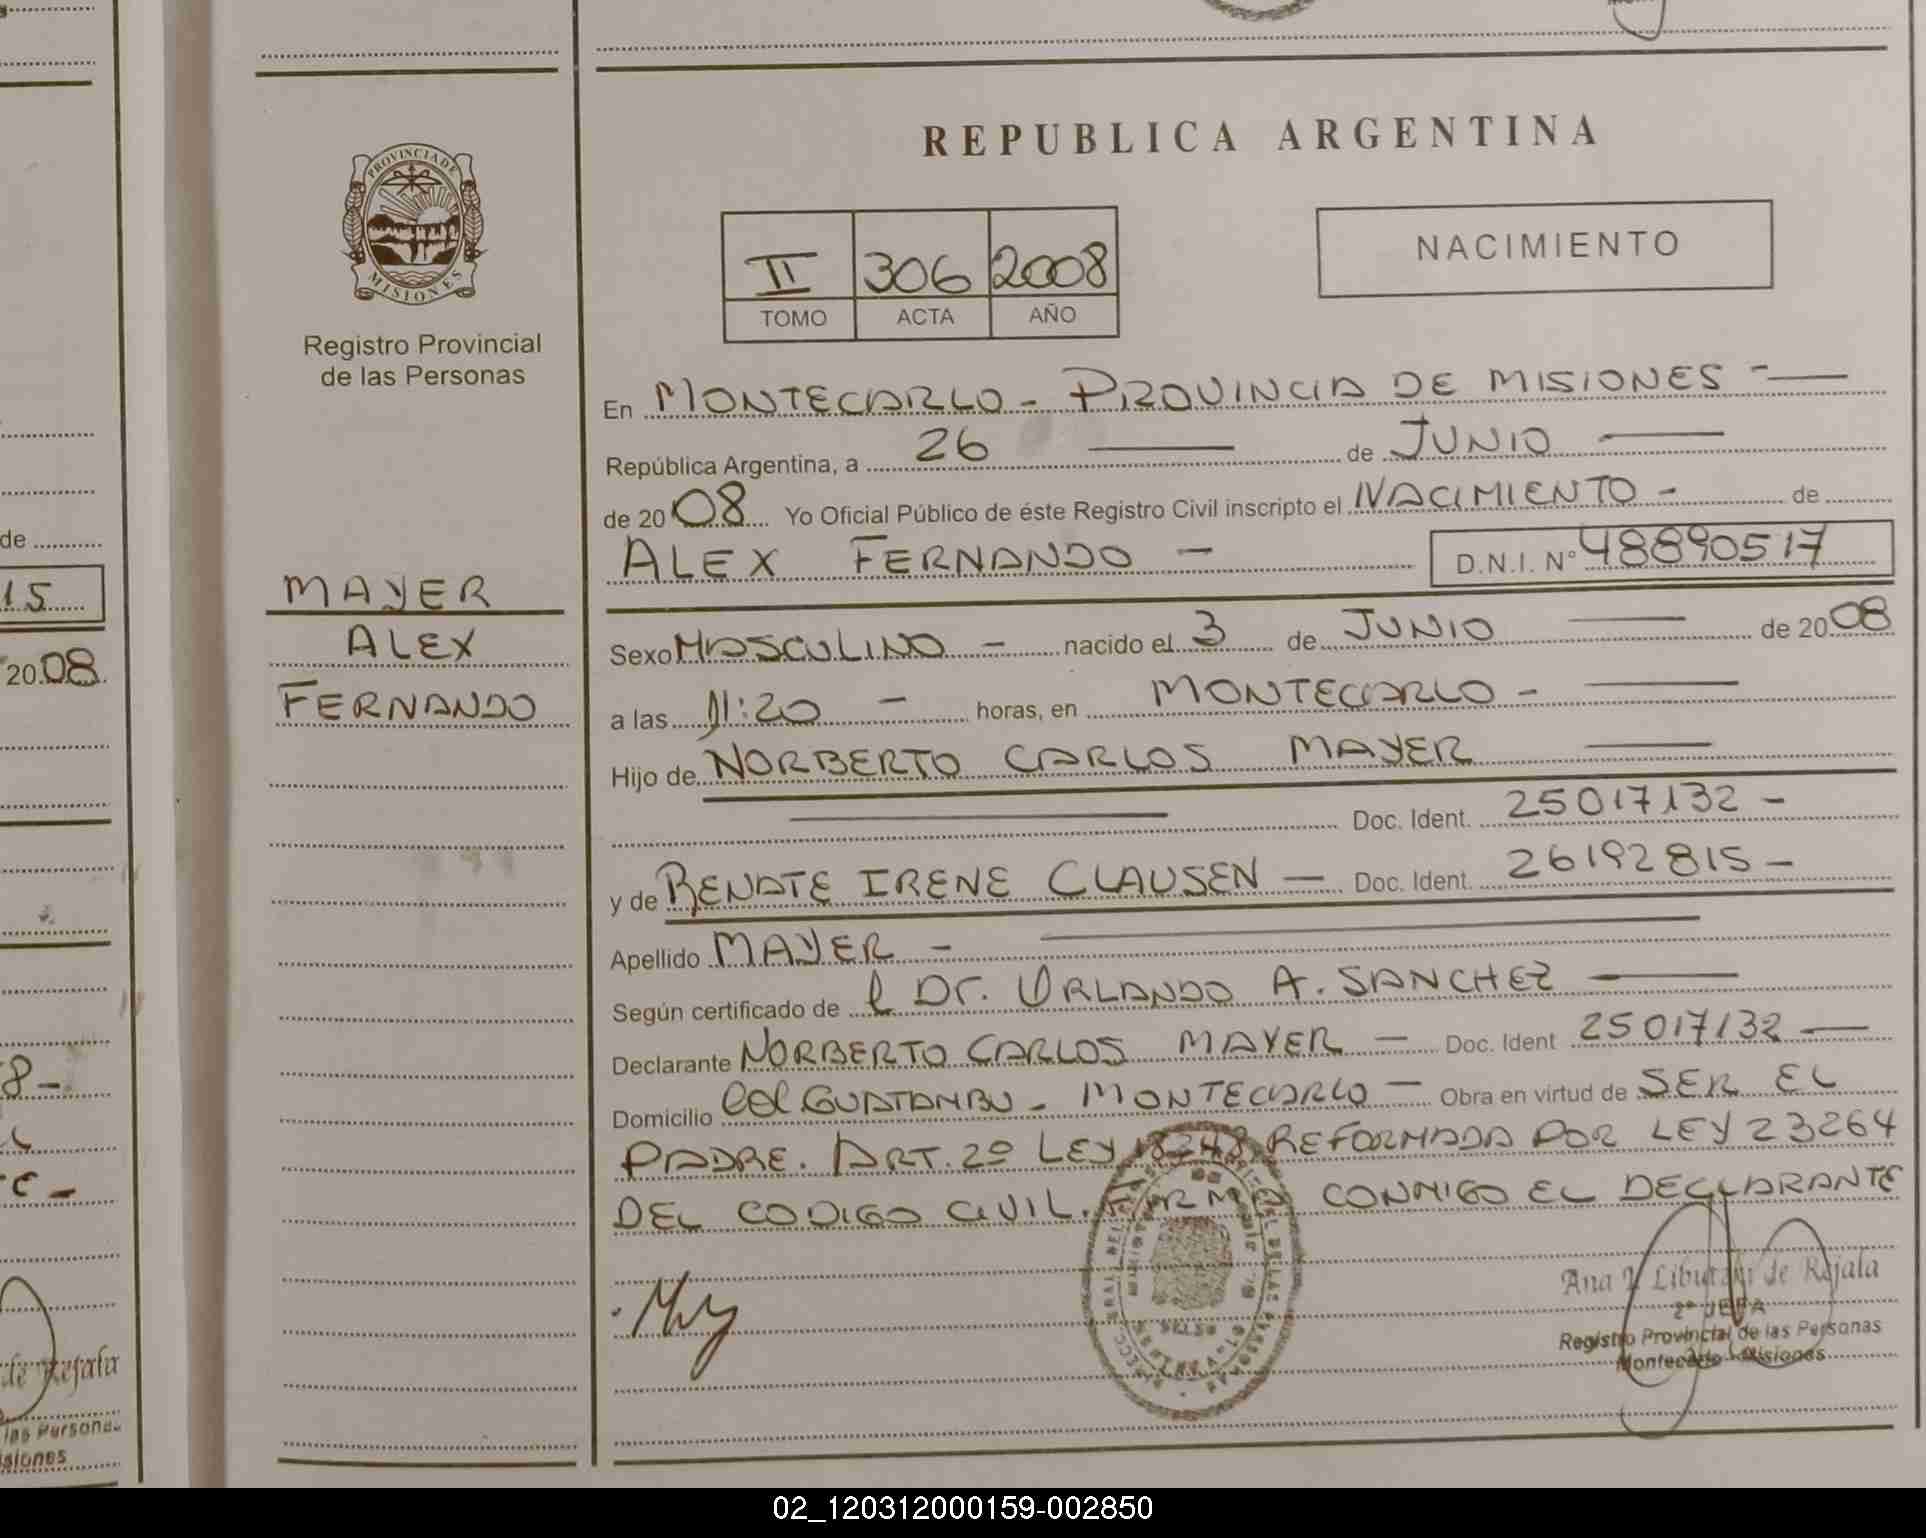 REPUBLICA ARGENTINA
PROVINCIA DE
MISIONES
Registro Provincial
de las Personas
II 306 2008
TOMO ACTA AÑO
NACIMIENTO
En MONTECARLO - PROVINCIA DE MISIONES -
República Argentina, a 26 de JUNIO
de 2008 Yo Oficial Público de éste Registro Civil inscripto el NACIMIENTO - de
ALEX FERNANDO - D.N.I. N° 48890517
MAYER
ALEX
FERNANDO
Sexo MASCULINO - nacido el 3 de JUNIO de 2008
a las 11:20 - horas, en MONTECARLO -
Hijo de NORBERTO CARLOS MAYER
Doc. Ident. 25017132 -
y de RENATE IRENE CLAUSEN - Doc. Ident. 26192815 -
Apellido MAYER -
Según certificado de l DR. ORLANDO A. SANCHEZ
Declarante NORBERTO CARLOS MAYER - Doc. Ident 25017132
Domicilio Col GUATAMBU - MONTECARLO - Obra en virtud de SER EL
PADRE. ART. 2º LEY 18248 REFORMADA POR LEY 23264
DEL CODIGO CIVIL. FIRMA CONMIGO EL DECLARANTE
de Rejala
2º JEFA
Registro Provincial de las Personas
Montecarlo - Misiones
de
15
2008
8-
de Rejala
las Persona
isiones
02_120312000159-002850